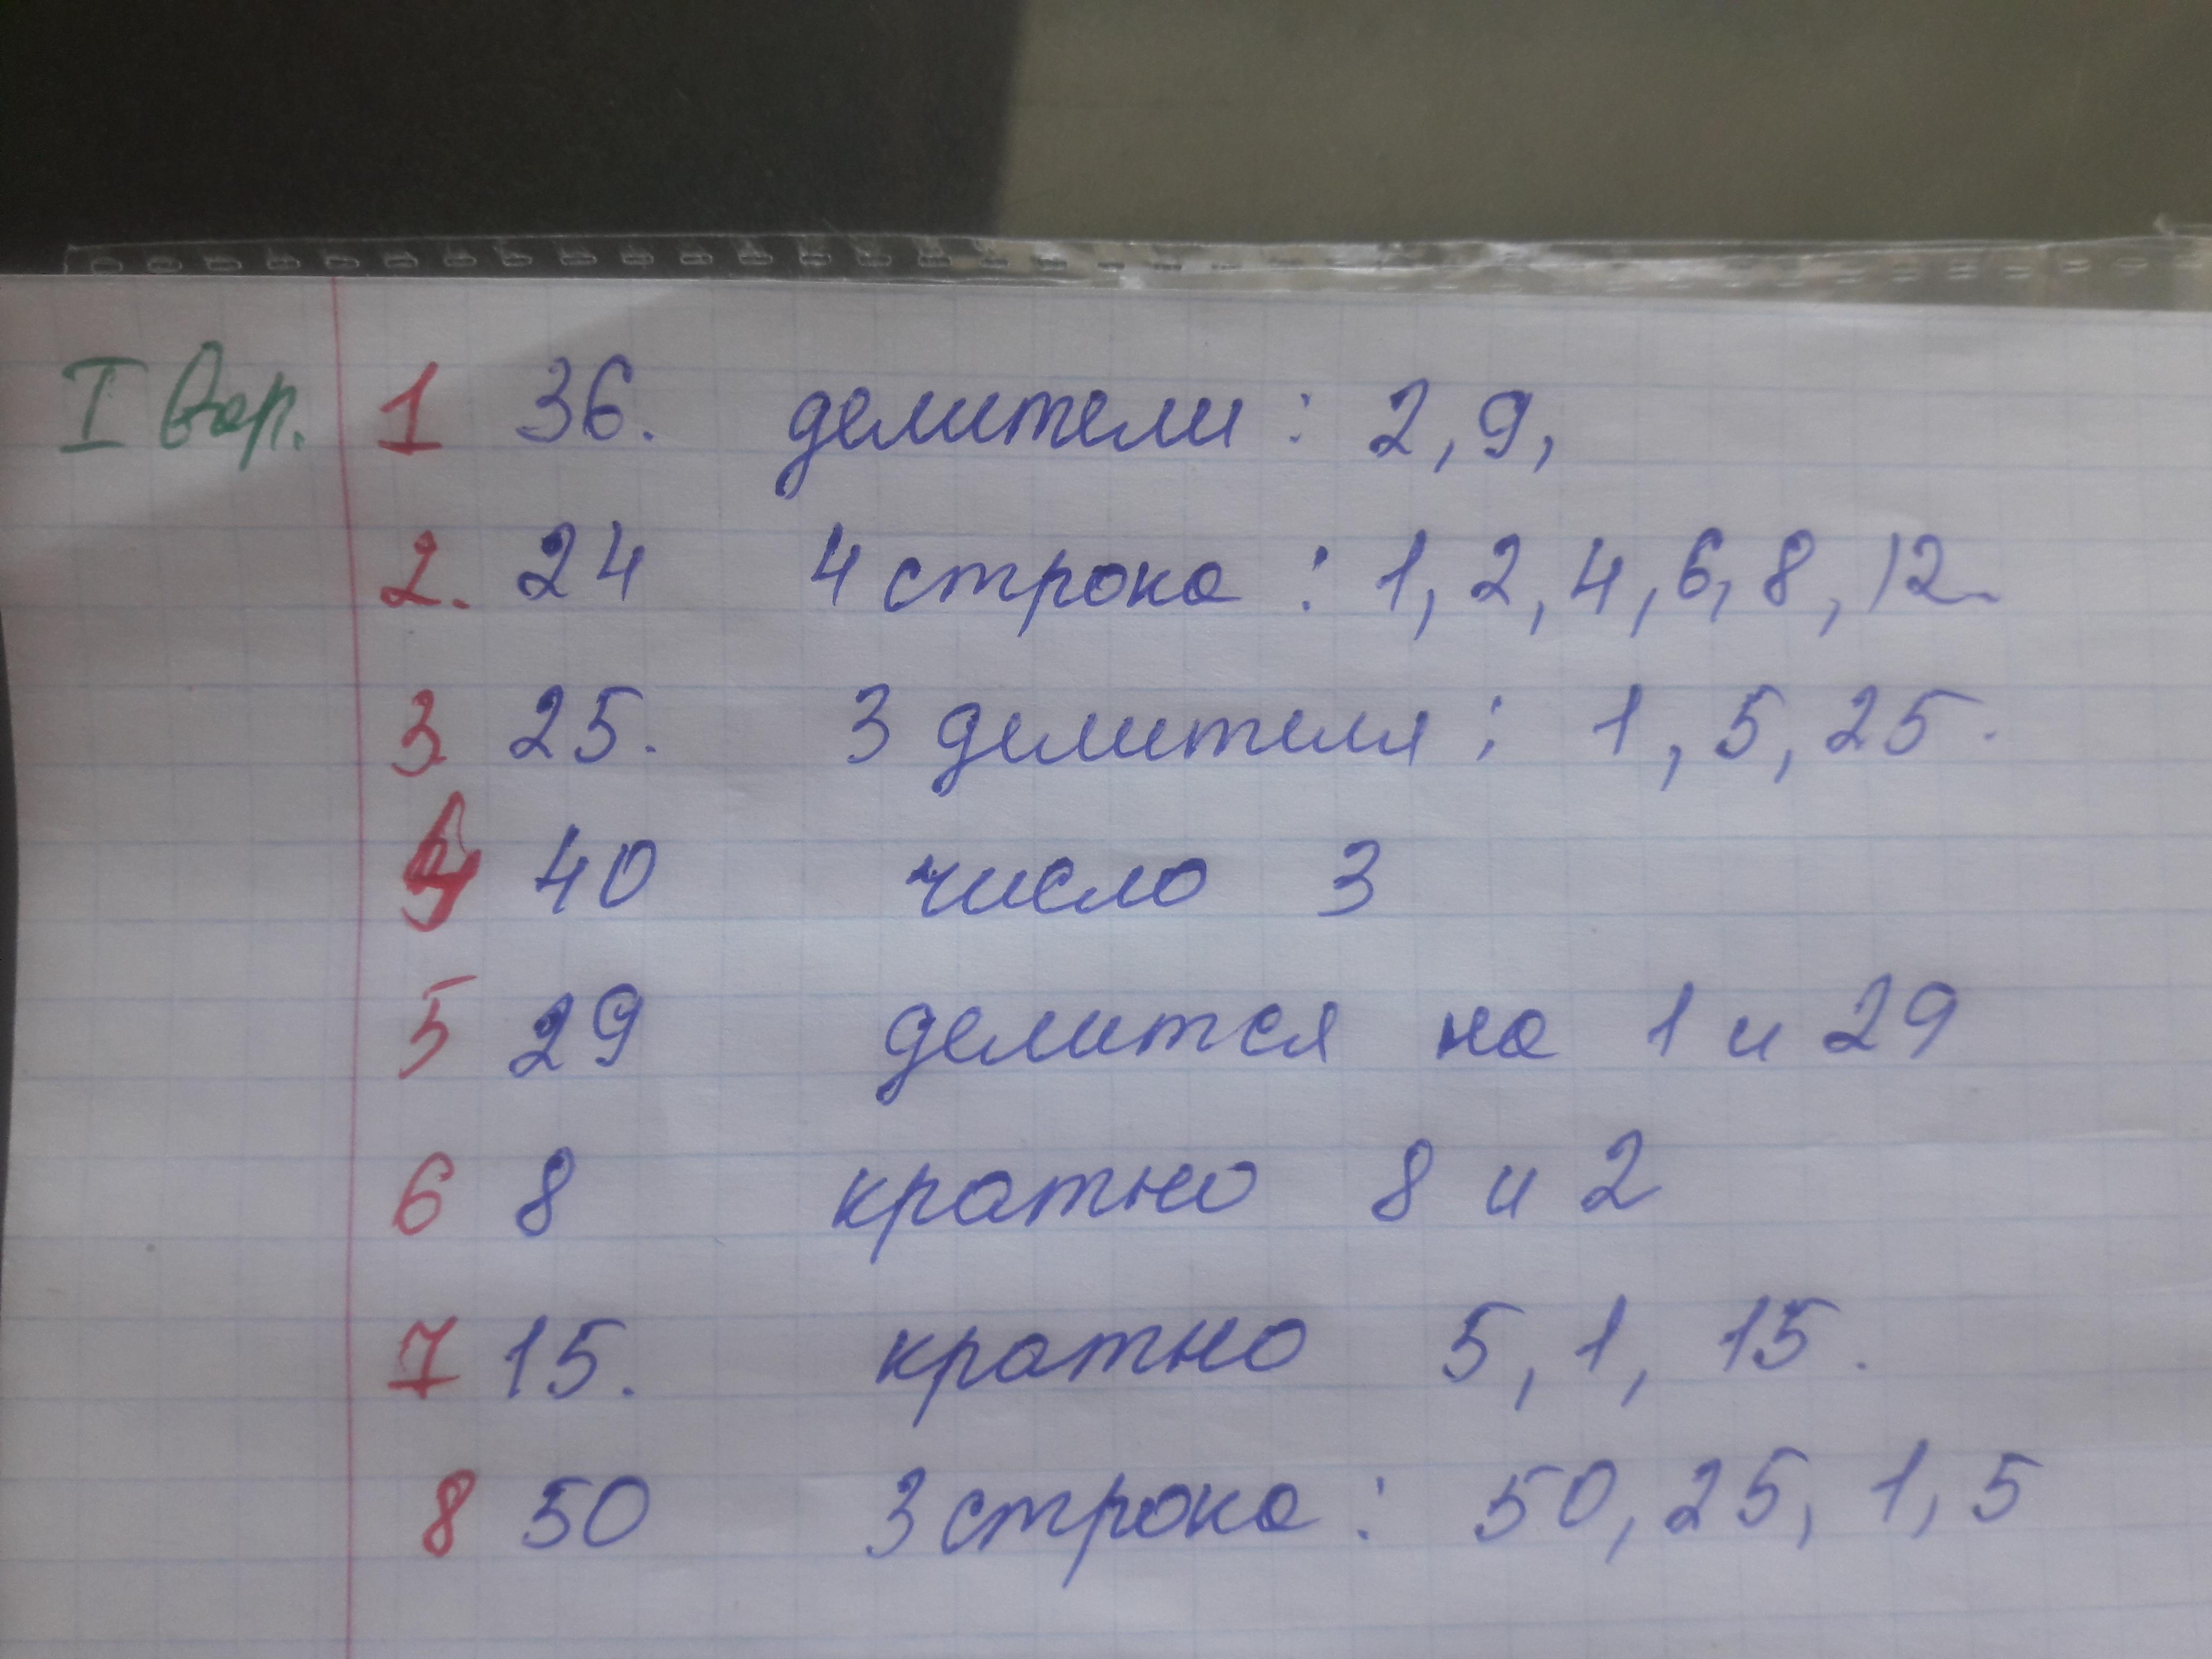 I вар. 1 36. делители: 2, 9,
2. 24 4 строка: 1, 2, 4, 6, 8, 12.
3 25. 3 делителя: 1, 5, 25.
4 40 число 3
5 29 делится на 1 и 29
6 8 кратно 8 и 2
7 15. кратно 5, 1, 15.
8 50 3 строка: 50, 25, 1, 5